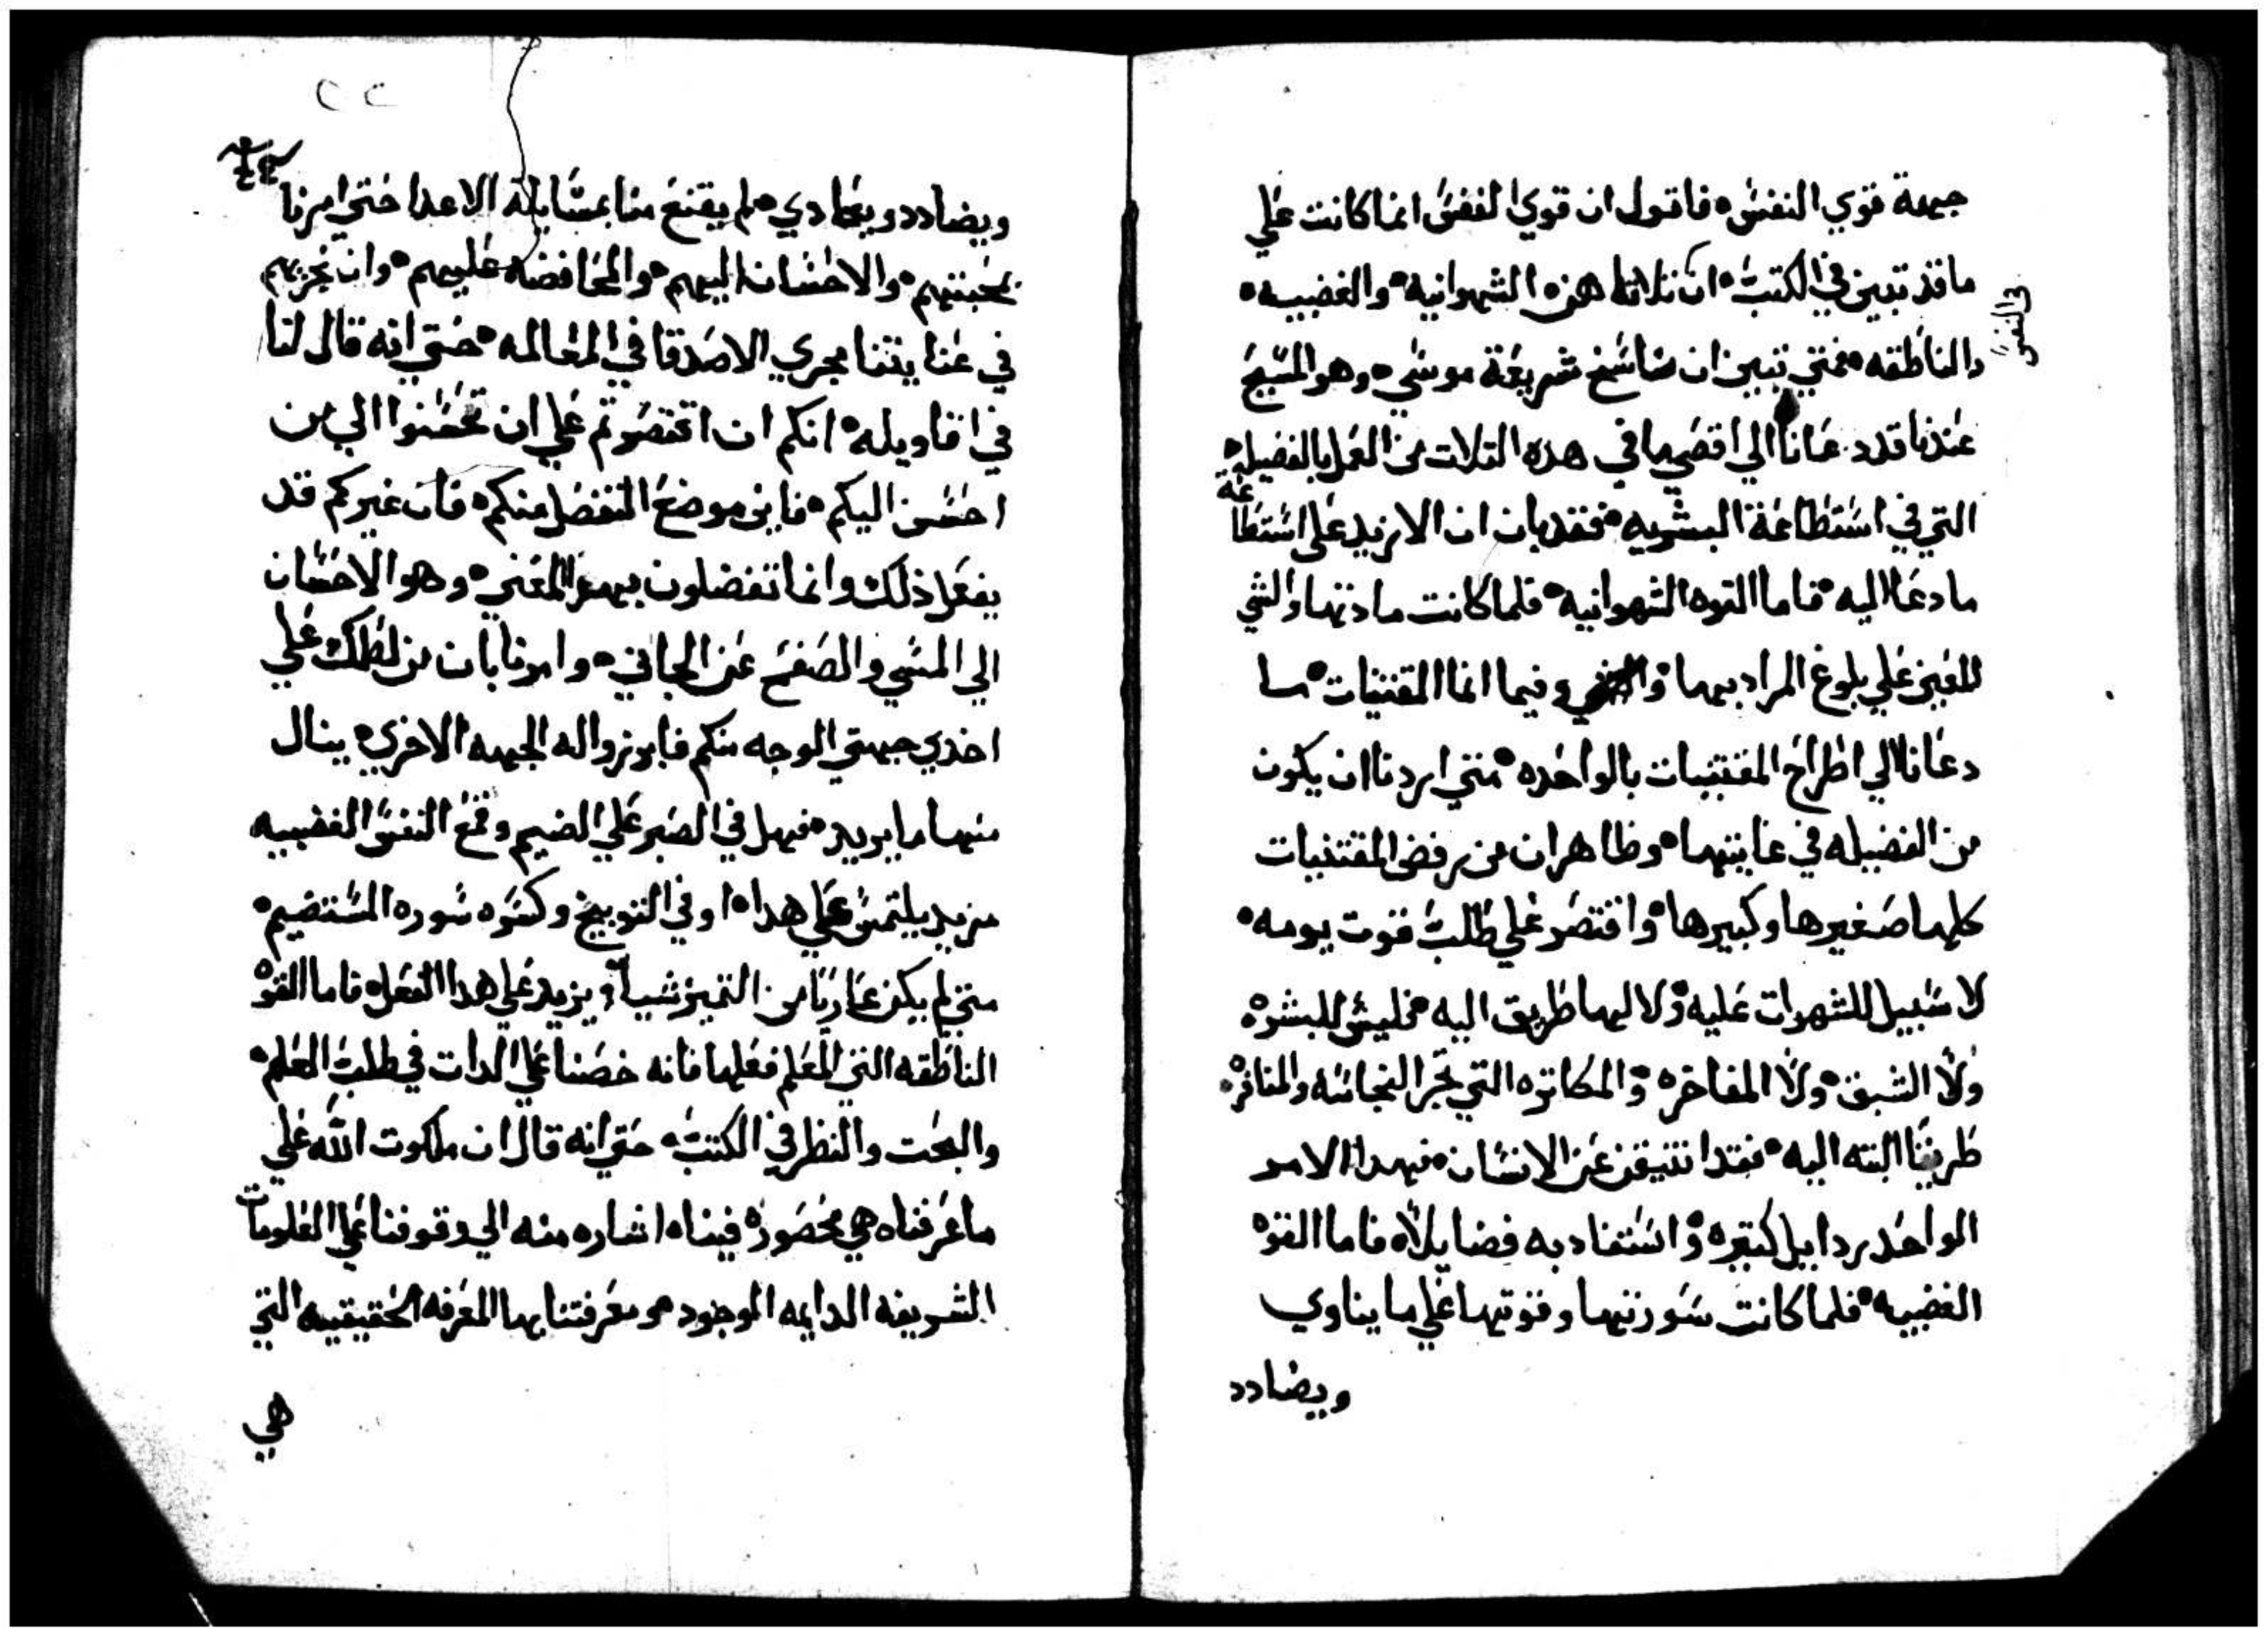 جهة قوي النفس ٥ فاقول ان قوي النفس انما كانت علي
ما قد تبين في الكتب ٥ ان ثلاثا هذه الشهوانيه ٥ والغضبيه ٥
في النفس
والناطقه ٥ فمتي تبين ان ناسخ شريعة موسي ٥ وهو المسيح
عندنا قد دعانا الي اقصي ما في هده التلات من العمل بالفضيله
التي في استطاعة البشريه ٥ فقد بان ان لا مزيد علي استطاعه
ما دعا اليه ٥ فاما القوه الشهوانيه ٥ فلما كانت مادتها والشي
المعين علي بلوغ المراد بها ٥ وفيما انما المقتنيات ٥ ما
دعانا الي اطراح المقتنيات بالواحده ٥ متي اردنا ان يكون
من الفضيله في غايتها ٥ وظاهر ان من رفض المقتنيات
كلها صغيرها وكبيرها ٥ واقتصر علي طلب قوت يومه ٥
لا سبيل للشهوات عليه ٥ ولا لها طريق اليه ٥ فليس للبشره
ولا الشبق ٥ ولا المفاخره ٥ والمكاتره التي تجر النجاسه والمنافره ٥
طريقا البته اليه ٥ فقد انتيقن عن الانسان ٥ فبهدا الامر
الواحد ردايل كتيره ٥ واستفاد به فضايلا ٥ فاما القوه
الغضبيه ٥ فلما كانت سورتها وقوتها علي ما يناوي
ويضادد
٤٤
ويضادد ويعادي ٥ لم يقنع منا بمسايلة الاعدا حتي امرنا
بمحبتهم ٥ والاحسان اليهم ٥ والمحافضه عليهم ٥ وان نجريهم
في عنايتنا مجري الاصدقا في المعامله ٥ حتي انه قال لنا
في اقاويله ٥ انكم ان اقتصرتم علي ان تحسنوا الي من
احسن اليكم ٥ فاين موضع التفضل منكم ٥ فان غيركم قد
يفعل ذلك وانما تفضلون بهدا المعني ٥ وهو الاحسان
الي المسي والصفح عن الجاني ٥ وامرنا بان من لطمك علي
احدي جهتي الوجه منكم فابرزوا له الجهه الاخري ٥ ينال
منها ما يريد ٥ فهل في الصبر علي الضيم وقمع النفس الغضبيه
مزيد يلتمس علي هدا ٥ او في التوبيخ وكسره سوره المستضيم ٥
متي لم يكن عاريا من التميز شيا ٥ ويزيد علي هدا الفعل ٥ فاما القوه
الناطقه التي العلم فعلها فانه حضنا علي الدات في طلب العلم ٥
والبحت والنظر في الكتب ٥ حتي انه قال ان ملكوت الله علي
ما عرفناه هي محصوره فينا ٥ اشاره منه الي وقوفنا علي العلومات
الشريفه الدايمه الوجود ٥ ومعرفتنا بها المعرفه الحقيقيه التي
هي